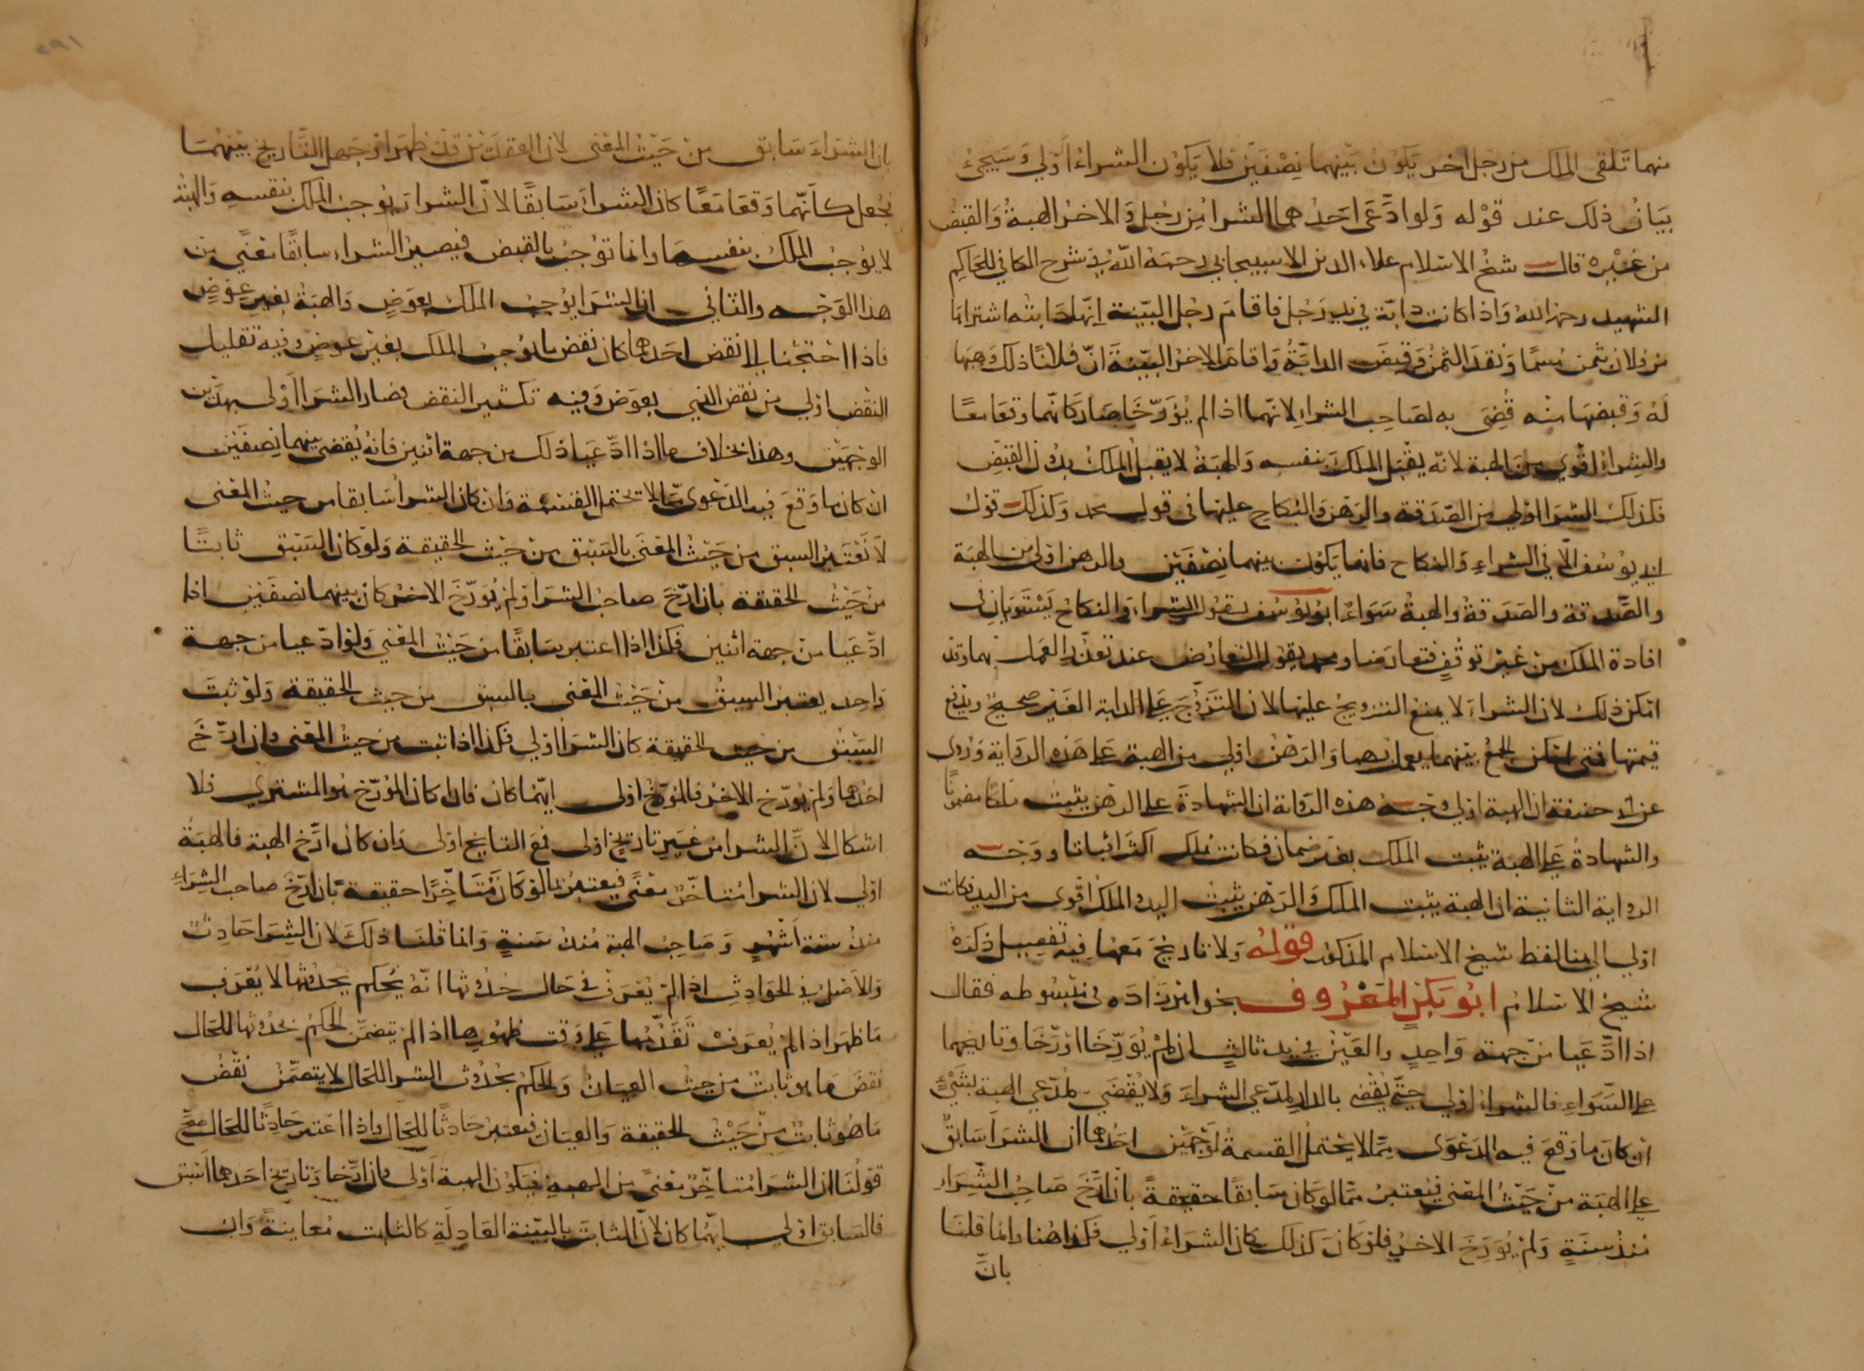 منهما تلقى الملك من رجل اخر يكون بينهما نصفين فلا يكون الشراء اولى وسيجئ
بيان ذلك عند قوله ولو ادعى احدهما الشرا من رجل والاخر الهبة والقبض
من غيره قال شيخ الاسلام علاء الدين الاسبيجابي رحمه الله في شرح الكافي للحاكم
الشهيد رحمه الله واذا كانت دابة في يد رجل فاقام رجل البينة انها دابته اشتراها
من فلان بثمن مسما ونقد الثمن وقبض الدابة واقام الاخر البينة ان فلانا ذلك وهبها
له وقبضها منه قضى به لصاحب الشراء لانهما اذا لم يؤرخا صار كانهما وقعا معا
والشراء اقوى من الهبة لانه يقبل الملك بنفسه والهبة لا يقبل الملك بدون القبض
فكذلك الشرا اولى من الصدقة والرهن والنكاح عليها في قول محمد وكذلك قول
ابي يوسف الا في الشراء والنكاح فانها يكون بينهما نصفين والرهن اولى من الهبة
والصدقة والصدقة والهبة سواء ابو يوسف يقول الشراء والنكاح يستويان في
افادة الملك من غير توقف فتعارضا ومحمد يقول التعارض عند تعذر العمل بهما وقد
امكن ذلك لان الشراء لا يمنع التزويج عليها لان التزوج على الدابة الغير صحيح ويدفع
قيمتها فمتى امكن الجمع بينهما يعمل بهما والرهن اولى من الهبة على هذه الرواية وروى
عن ابي حنيفة ان الهبة اولى وجه هذه الرواية ان الشهادة على الرهن يثبت ملكا مضمونا
والشهادة على الهبة يثبت الملك بغير ضمان فكانت تلك اكثر اثباتا ووجه
الرواية الثانية ان الهبة يثبت الملك والرهن يثبت اليد والملك اقوى من اليد فكانت
اولى الى هنا لفظ شيخ الاسلام المذكور قوله ولا تاريخ معهما فيه تفصيل ذكره
شيخ الاسلام ابو بكر المعروف بخواهر زاده في مبسوطه فقال
اذا ادعيا من جهة واحد والعين في يد ثالث ان لم يؤرخا او ارخا وتاريخهما
على السواء فالشراء اولى حتى يقضى بالدار لمدعي الشراء ولا يقضى لمدعي الهبة بشيء
ان كان ما وقع فيه الدعوى مما لا يحتمل القسمة لوجهين احدهما ان الشرا سابق
على الهبة من حيث المعنى فيعتبر بما لو كان سابقا حقيقة بان ارخ صاحب الشراء
منذ سنة ولم يؤرخ الاخر فلو كان كذلك كان الشراء اولى فكذا هنا وانما قلنا
بان
بان الشراء سابق من حيث المعنى لان العقدين قد ظهرا وجهل التاريخ بينهما
نجعل كانهما وقعا معا كان الشراء سابقا لان الشراء يوجب الملك بنفسه والهبة
لا يوجب الملك بنفسها وانما توجب بالقبض فيصير الشراء سابقا معنى من
هذا الوجه والثاني ان الشرا يوجب الملك بعوض والهبة بغير عوض
فاذا احتجنا الى نقض احدهما كان نقض ما يوجب الملك بغير عوض وفيه تقليل
النقض اولى من نقض الذي بعوض وفيه تكثير النقض فصار الشرا اولى بهذين
الوجهين وهذا بخلاف ما اذا ادعيا ذلك من جهة اثنين فانه يقضى بينهما نصفين
ان كان ما وقع فيه الدعوى مما لا يحتمل القسمة وان كان الشرا سابقا من حيث المعنى
لا نعتبر السبق من حيث المعنى بالسبق من حيث الحقيقة ولو كان السبق ثابتا
من حيث الحقيقة بان ارخ صاحب الشرا ولم يؤرخ الاخر كان بينهما نصفين اذا
ادعيا من جهة اثنين فكذا اذا اعتبر سابقا من حيث المعنى ولو ادعيا من جهة
واحد يعتبر السبق من حيث المعنى بالسبق من حيث الحقيقة ولو ثبت
السبق من حيث الحقيقة كان الشرا اولى فكذا اذا ثبت من حيث المعنى وان ارخ
احدهما ولم يؤرخ الاخر فالمؤرخ اولى ايهما كان فان كان المؤرخ هو المشتري فلا
اشكال لان الشرا من غير تاريخ اولى فمع التاريخ اولى وان كان ارخ الهبة فالهبة
اولى لان الشرا متاخر معنى فيعتبر بما لو كان متاخرا حقيقة بان ارخ صاحب الشراء
منذ ستة اشهر وصاحب الهبة منذ سنة وانما قلنا ذلك لان الشرا حادث
والاصل في الحوادث اذا لم يعرف في حال حدوثها انه يحكم بحدوثها لا يعرف
ما ظهر اذا لم يعرف تقدمها على وقت ظهورها اذا لم يتضمن الحكم بحدوثها للحال
نقض ما هو ثابت من حيث العيان والحكم بحدوث الشرا للحال لا يتضمن نقض
ما هو ثابت من حيث الحقيقة والعيان فيعتبر حادثا للحال واذا اعتبر حادثا للحال صح
قولنا ان الشرا متاخر معنى من الهبة فيكون الهبة اولى وان ارخا وتاريخ احدهما اسبق
فالسابق اولى ايهما كان لان الثابت بالبينة العادلة كالثابت معاينة وان